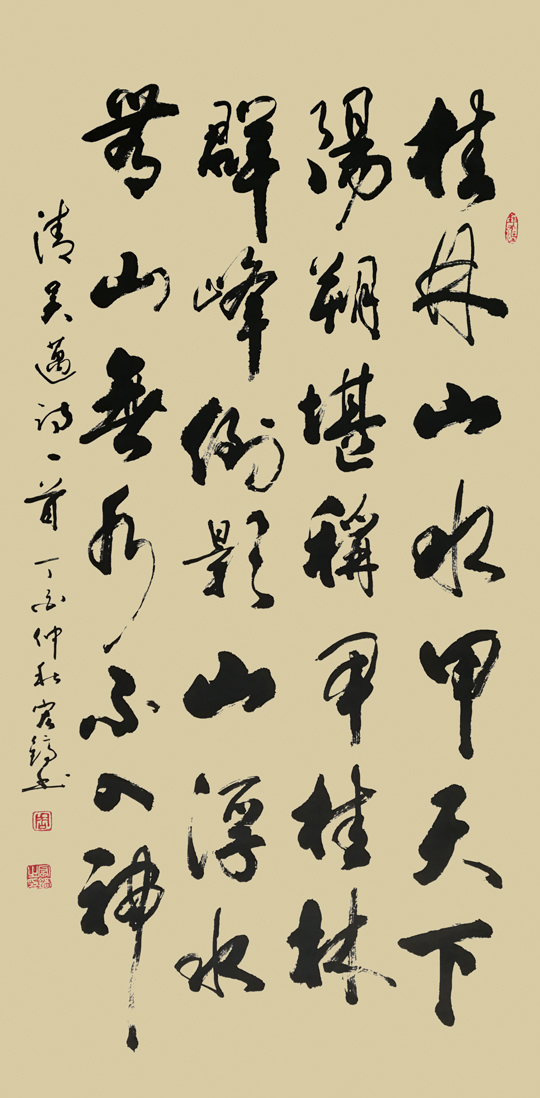 桂林山水甲天下
陽朔堪稱甲桂林
群峰倒影山浮水
無山無水不入神
清吴邁诗一首 丁酉仲秋 书